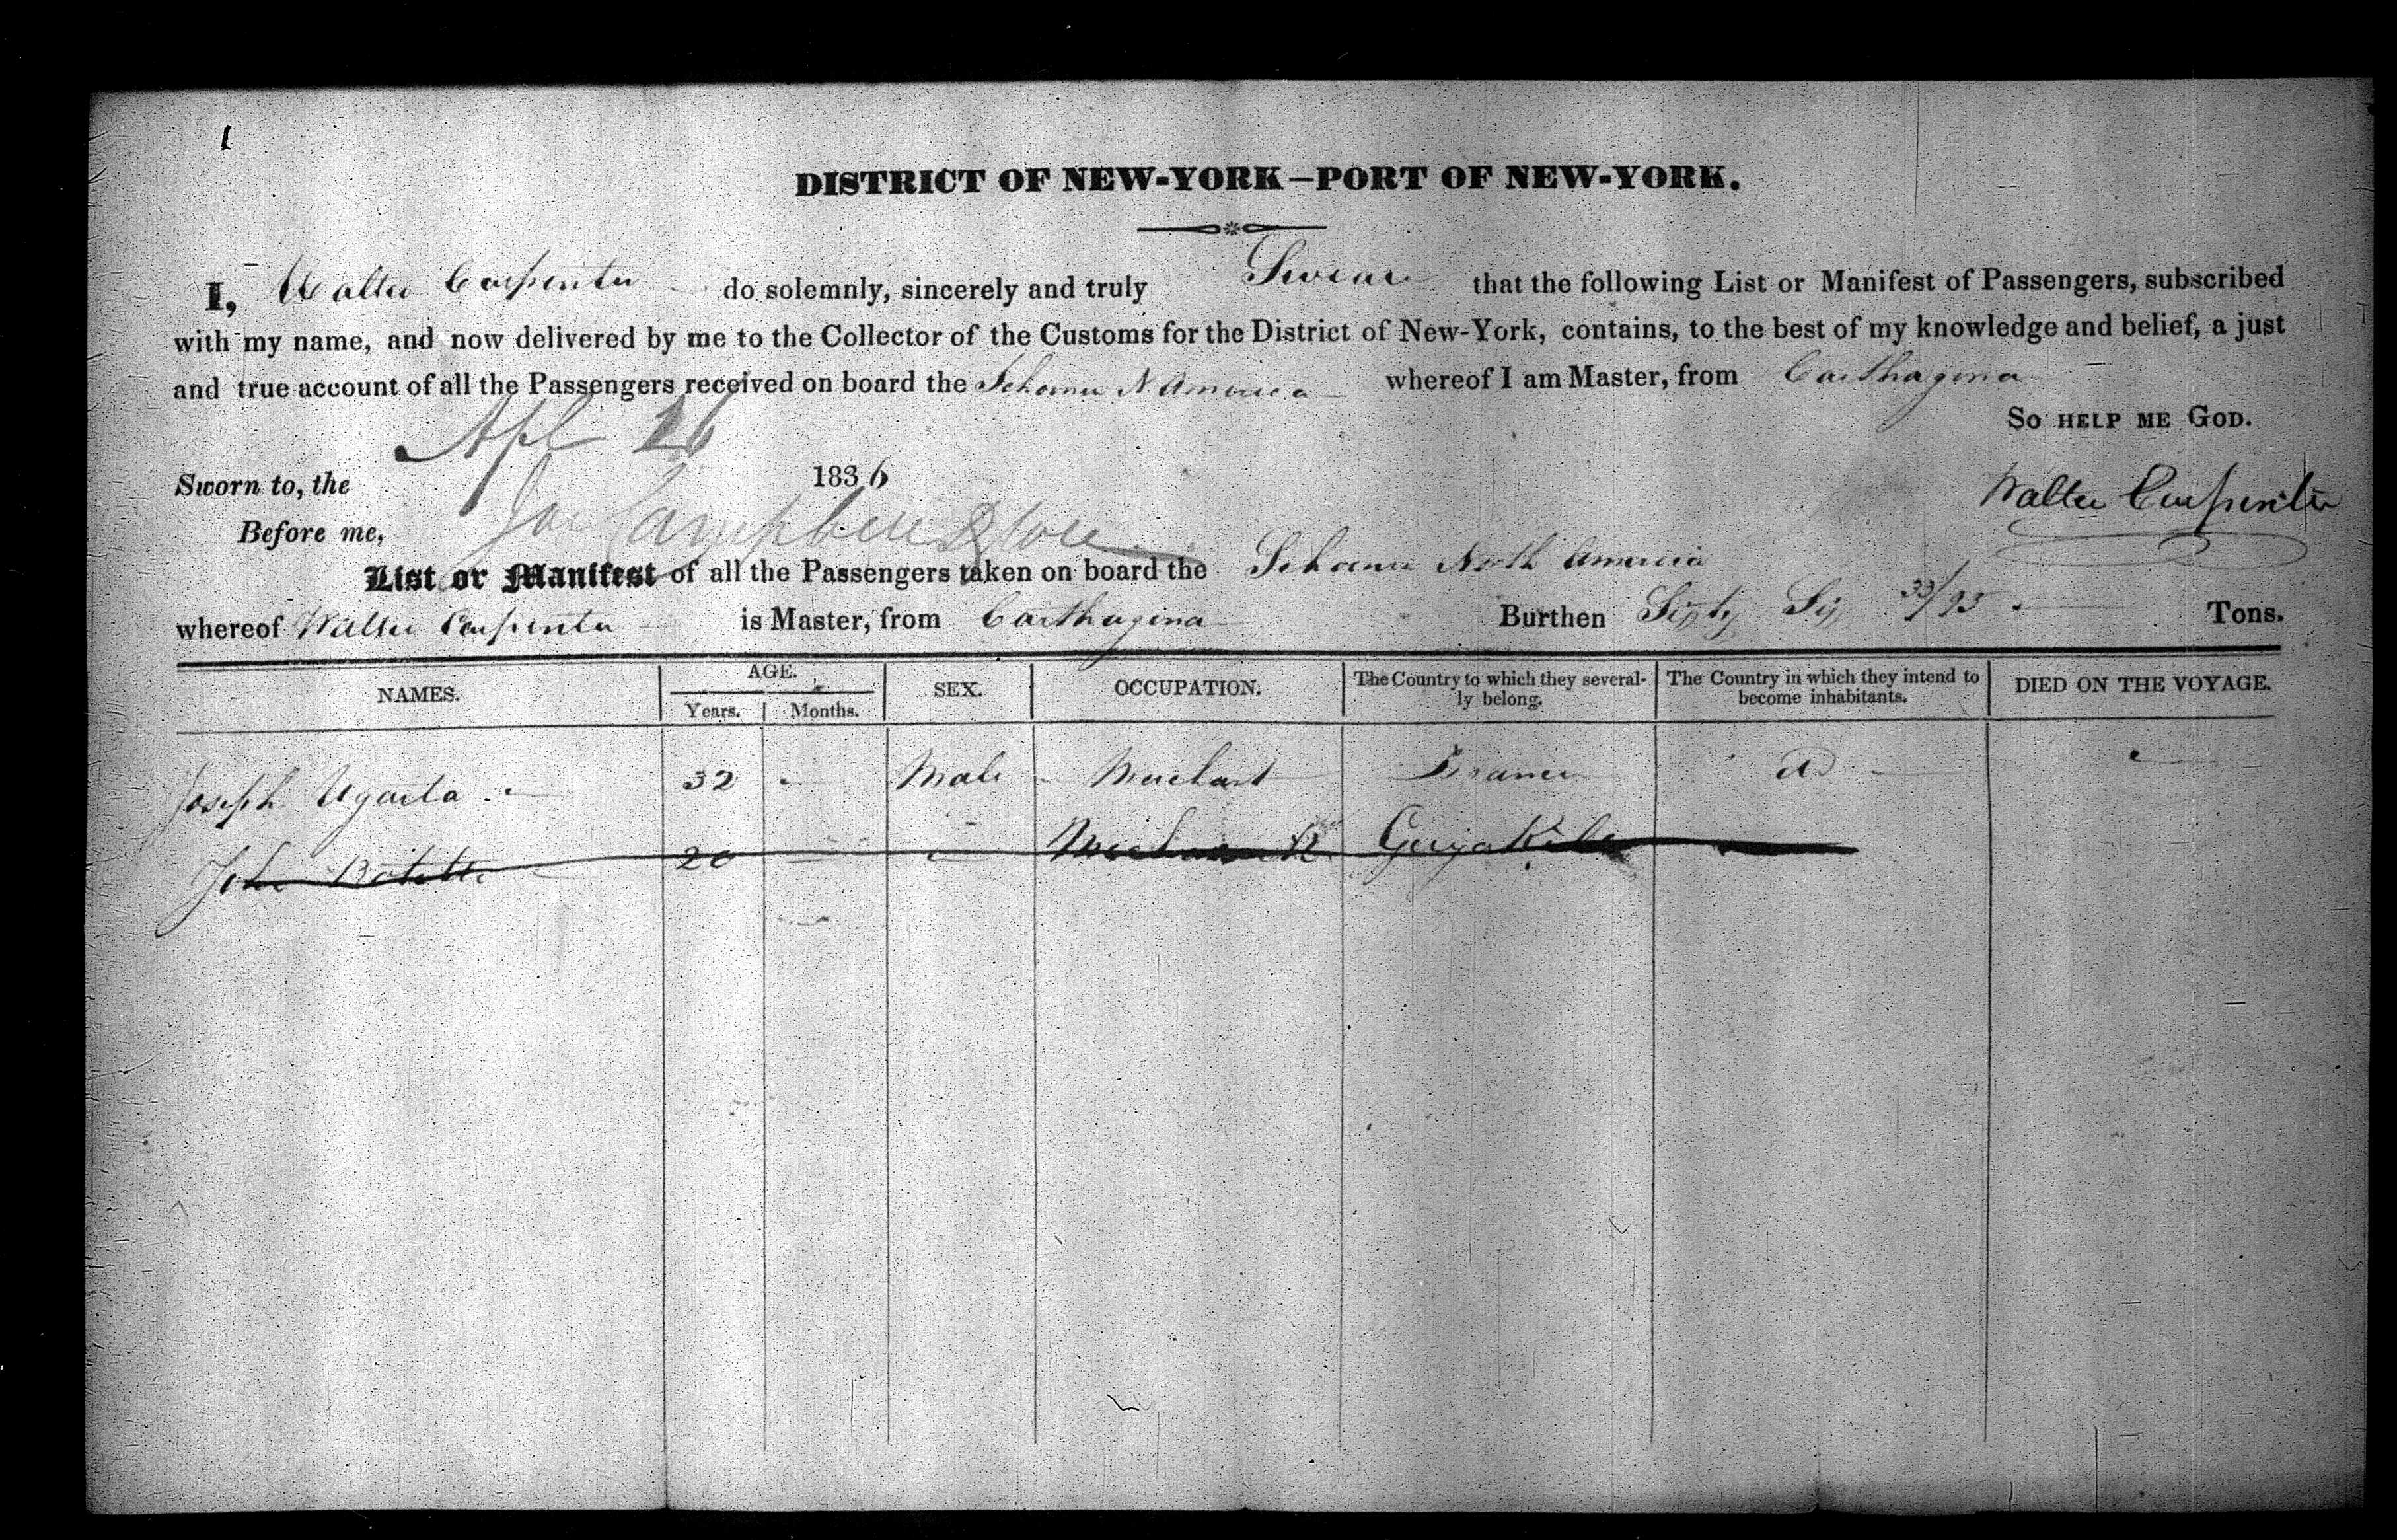 1
DISTRICT OF NEW-YORK—PORT OF NEW-YORK.
I, Walter Carpenter do solemnly, sincerely and truly Swear that the following List or Manifest of Passengers, subscribed
with my name, and now delivered by me to the Collector of the Customs for the District of New-York, contains, to the best of my knowledge and belief, a just
and true account of all the Passengers received on board the Schooner N. America whereof I am Master, from Carthagena
So HELP ME GOD.
Sworn to, the Apl 26 1836
Walter Carpenter
Before me,
List or Manifest of all the Passengers taken on board the Schooner North America
whereof Walter Carpenter is Master, from Carthagena Burthen Sixty Six 33/95 Tons.
NAMES. AGE. Years. Months. SEX. OCCUPATION. The Country to which they severally belong. The Country in which they intend to become inhabitants. DIED ON THE VOYAGE.
Joseph Ugarta 32 Male Merchant France
John 20 Guyakile